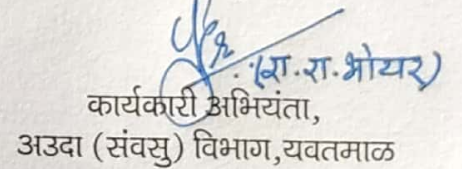 (रा.रा.भोयर)
कार्यकारी अभियंता,
अउदा (संवसु) विभाग,यवतमाळ